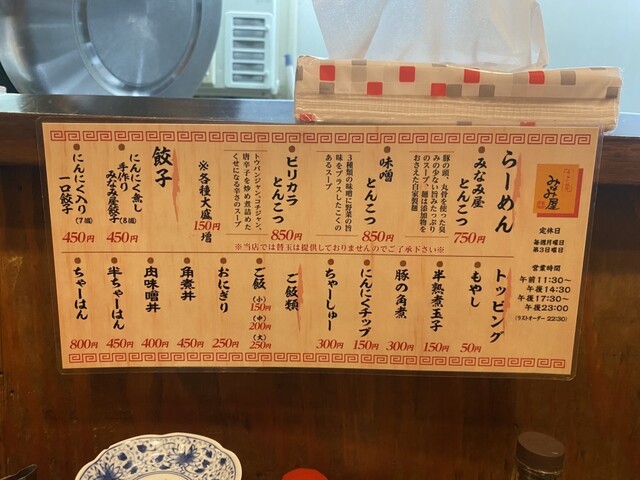 みなみ屋
定休日
毎週月曜日
第3日曜日
営業時間
午前11:30〜
午後14:30
午後17:30〜
午後23:00
(ラストオーダー 22:30)
らーめん
みなみ屋
とんこつ
豚の頭、丸骨を使った臭
みの少ない旨みたっぷり
のスープ、麺は添加物を
おさえた自家製麺
750円
味噌
とんこつ
3種類の味噌に野菜の旨
味をプラスしたこくの
あるスープ
850円
ピリカラ
とんこつ
トウバンジャン、コチジャン、
唐辛子を炒め煮詰めた
くせになる辛さのスープ
850円
※各種大盛
150円増
餃子
にんにく無し
手作り
みなみ屋餃子(8個)
450円
にんにく入り(7個)
一口餃子
450円
※当店では替玉は提供しておりませんのでご了承下さい※
トッピング
もやし
50円
半熟煮玉子
150円
豚の角煮
300円
にんにくチップ
150円
ちゃーしゅー
300円
ご飯類
ご飯
(小)
150円
(中)
200円
(大)
250円
おにぎり
250円
角煮丼
450円
肉味噌丼
400円
半ちゃーはん
450円
ちゃーはん
800円